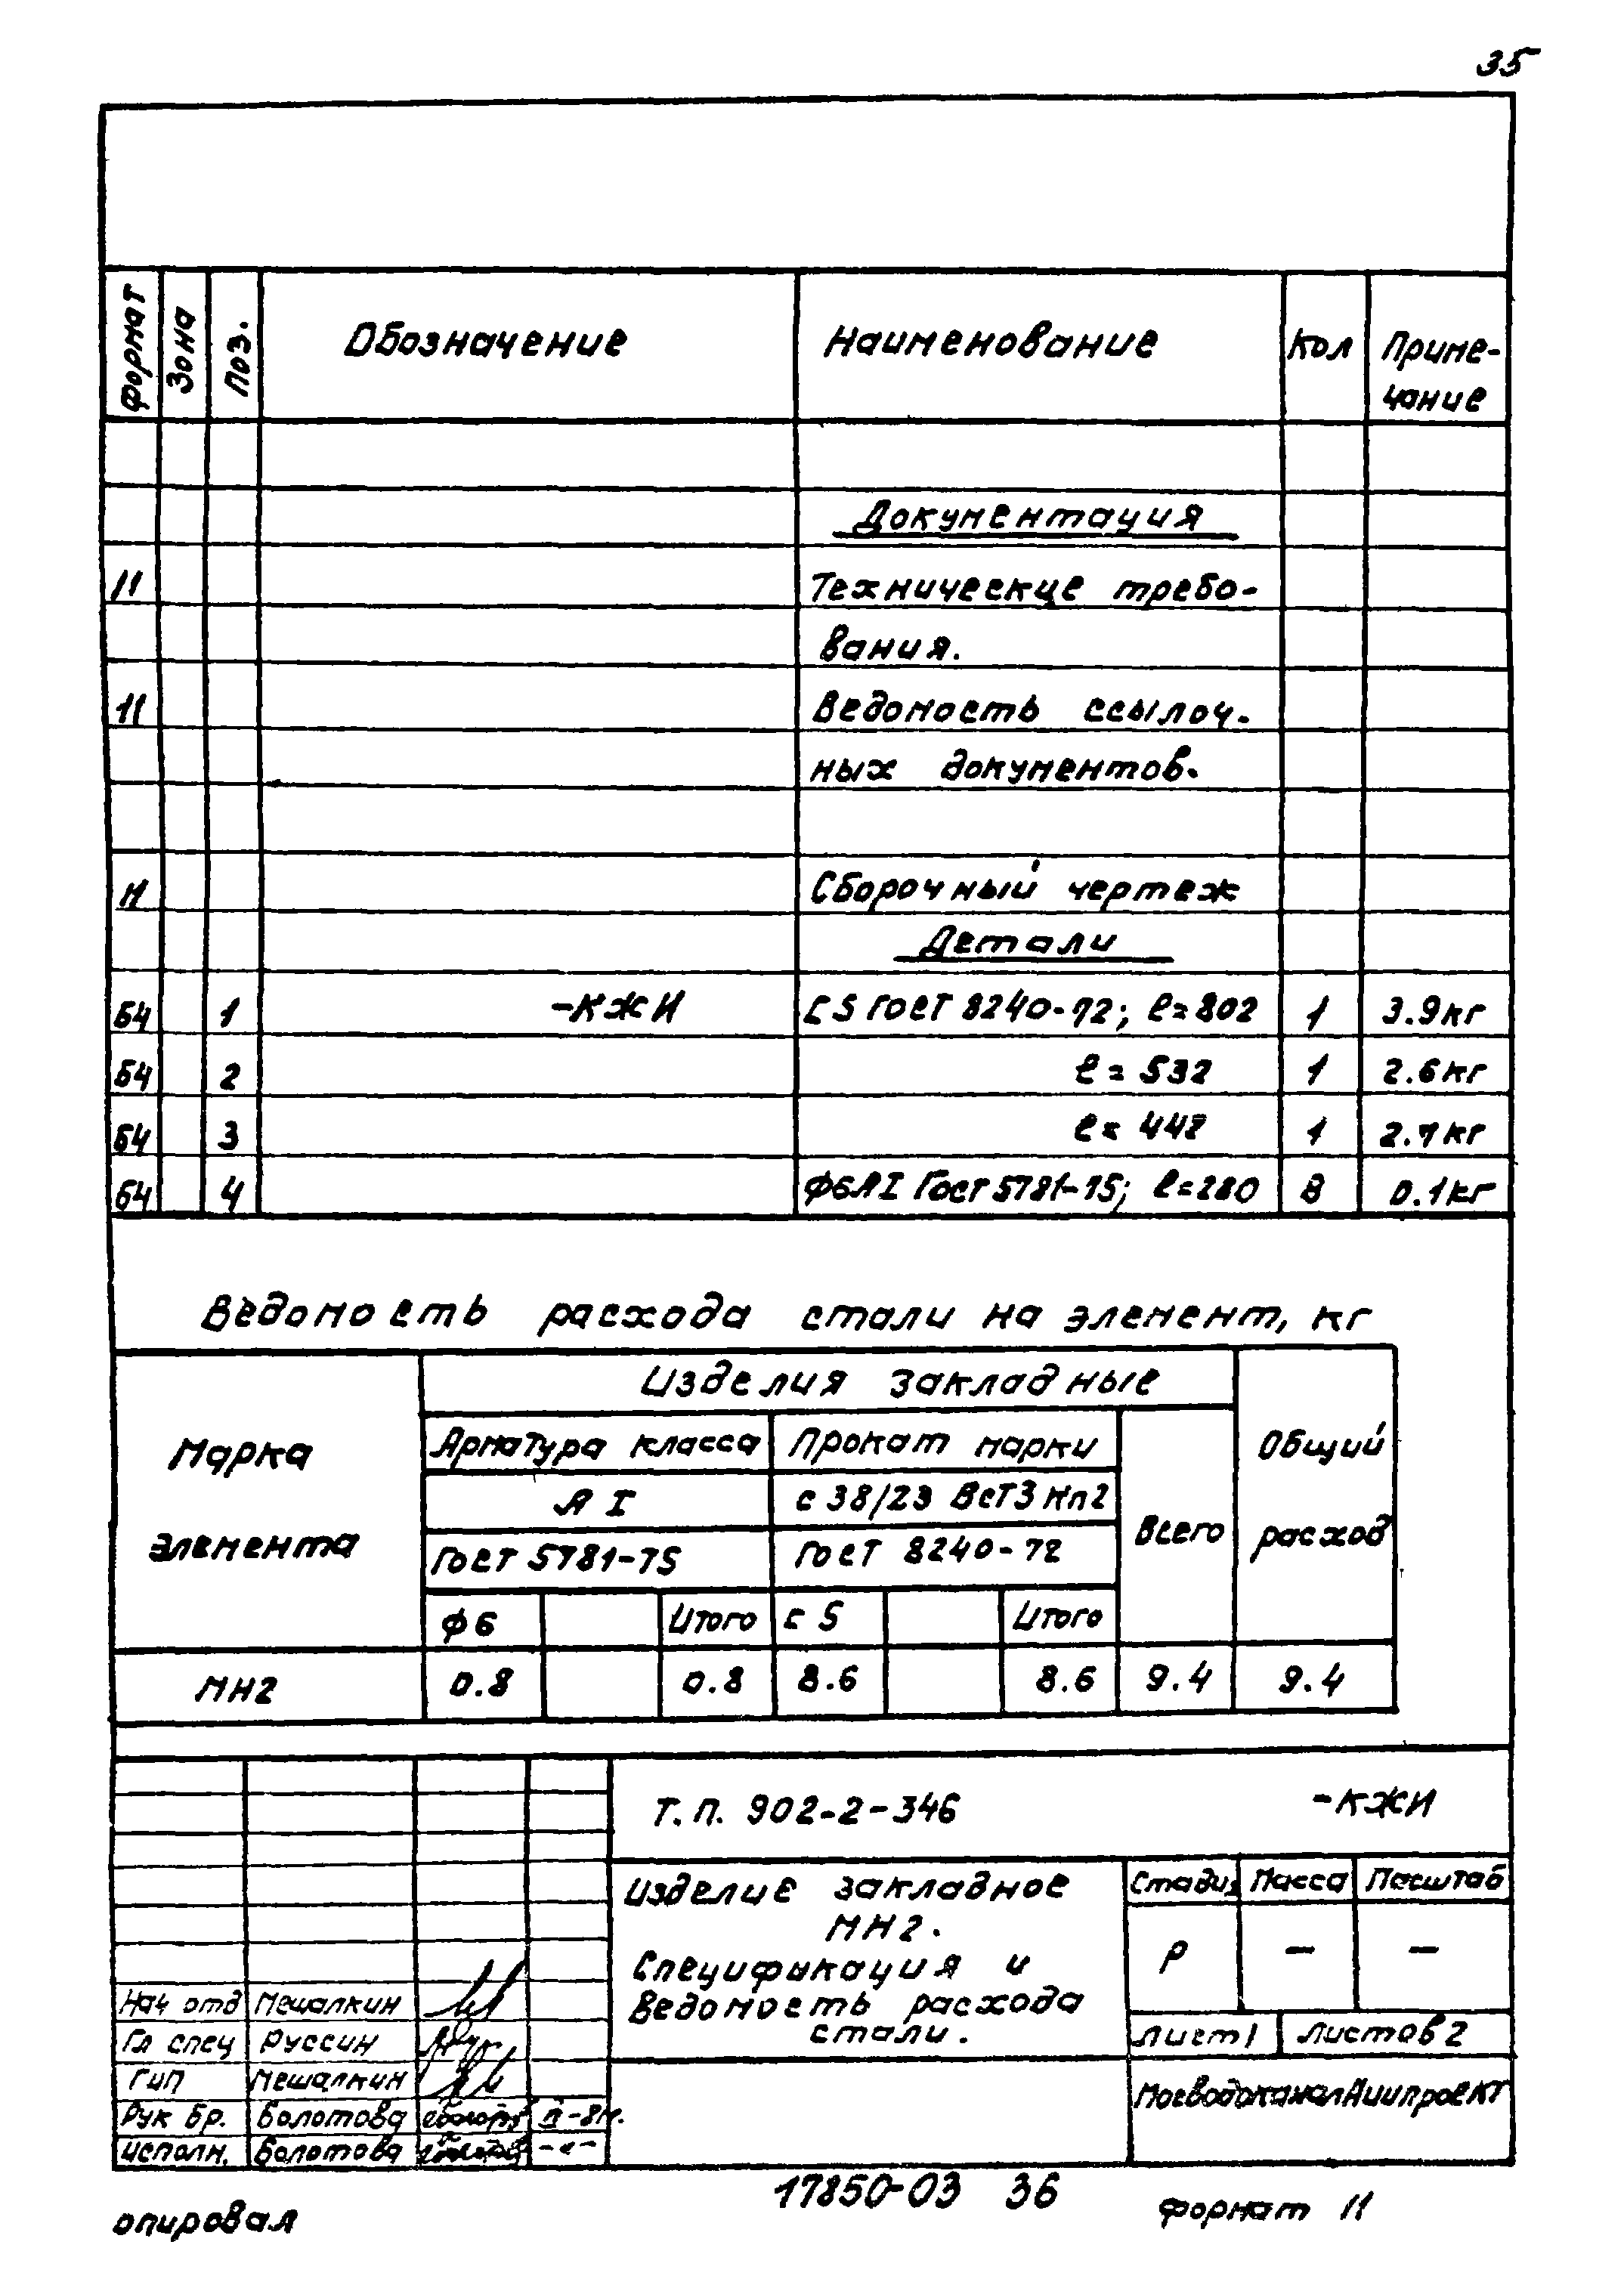 35
Формат Зона Поз. Обозначение Наименование Кол Приме-
чание
Документация
11 Технические требо-
вания.
11 Ведомость ссылоч-
ных документов.
11 Сборочный чертеж
Детали
Б4 1 -КЖИ С5 ГОСТ 8240-72; ℓ=802 1 3.9кг
Б4 2 ℓ=532 1 2.6кг
Б4 3 ℓ=442 1 2.1кг
Б4 4 Ф6АI ГОСТ 5781-75; ℓ=280 8 0.1кг
Ведомость расхода стали на элемент, кг
Марка элемента Изделия закладные Общий расход
Арматура класса Прокат марки Всего
А I С 38/23 ВСт3кп2
ГОСТ 5781-75 ГОСТ 8240-72
Ф6 Итого С5 Итого
МН2 0.8 0.8 8.6 8.6 9.4 9.4
Т.П. 902-2-346 -КЖИ
Изделие закладное
МН2.
Спецификация и
ведомость расхода
стали.
Стадия Масса Масштаб
Р — —
Лист 1 Листов 2
МосводоканалНИИпроект
Нач отд Мешалкин
Гл спец Руссин
ГИП Мешалкин
Рук бр. Болотова
Исполн. Болотова -"-
опировал
17850-03 36
формат 11